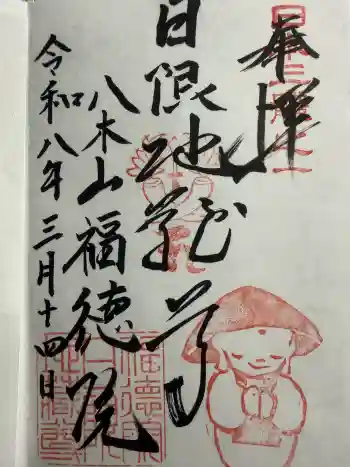 奉拝
日限地蔵尊
八木山福徳院
令和八年三月十四日